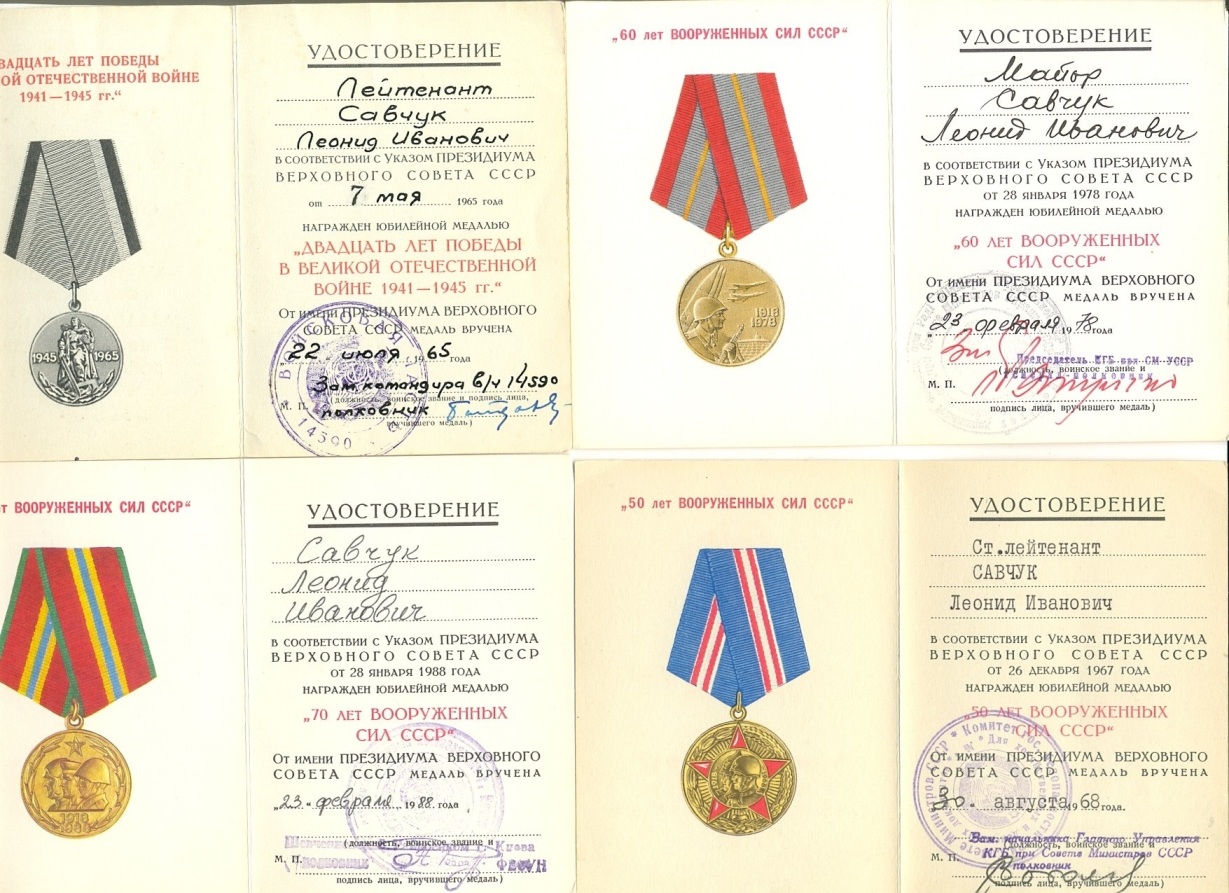 ВАДЦАТЬ ЛЕТ ПОБЕДЫ
ОЙ ОТЕЧЕСТВЕННОЙ ВОЙНЕ
1941—1945 гг.“
1945 1965
УДОСТОВЕРЕНИЕ
Лейтенант
Савчук
Леонид Иванович
в соответствии с Указом ПРЕЗИДИУМА
ВЕРХОВНОГО СОВЕТА СССР
от 7 мая 1965 года
НАГРАЖДЕН ЮБИЛЕЙНОЙ МЕДАЛЬЮ
„ДВАДЦАТЬ ЛЕТ ПОБЕДЫ
В ВЕЛИКОЙ ОТЕЧЕСТВЕННОЙ
ВОЙНЕ 1941—1945 гг.“
От имени ПРЕЗИДИУМА ВЕРХОВНОГО
СОВЕТА СССР МЕДАЛЬ ВРУЧЕНА
„22 июля 65 года
Зам. командира в/ч 14590
(должность, воинское звание и подпись лица,
М. П. полковник
вручившего медаль)
14590
„60 лет ВООРУЖЕННЫХ СИЛ СССР“
1918
1978
УДОСТОВЕРЕНИЕ
Майор
Савчук
Леонид Иванович
в соответствии с Указом ПРЕЗИДИУМА
ВЕРХОВНОГО СОВЕТА СССР
ОТ 28 ЯНВАРЯ 1978 ГОДА
НАГРАЖДЕН ЮБИЛЕЙНОЙ МЕДАЛЬЮ
„60 ЛЕТ ВООРУЖЕННЫХ
СИЛ СССР“
От имени ПРЕЗИДИУМА ВЕРХОВНОГО
СОВЕТА СССР МЕДАЛЬ ВРУЧЕНА
„23 февраля 1978 года
Председатель КГБ при СМ УССР
(должность, воинское звание и
М. П.
подпись лица, вручившего медаль)
т ВООРУЖЕННЫХ СИЛ СССР“
1918
1988
УДОСТОВЕРЕНИЕ
Савчук
Леонид
Иванович
в соответствии с Указом ПРЕЗИДИУМА
ВЕРХОВНОГО СОВЕТА СССР
ОТ 28 ЯНВАРЯ 1988 ГОДА
НАГРАЖДЕН ЮБИЛЕЙНОЙ МЕДАЛЬЮ
„70 ЛЕТ ВООРУЖЕННЫХ
СИЛ СССР“
От имени ПРЕЗИДИУМА ВЕРХОВНОГО
СОВЕТА СССР МЕДАЛЬ ВРУЧЕНА
„23“ февраля 1988 года
(должность, воинское звание и
г. Киева
М. П. полковник
подпись лица, вручившего медаль)
„50 лет ВООРУЖЕННЫХ СИЛ СССР“
УДОСТОВЕРЕНИЕ
Ст.лейтенант
САВЧУК
Леонид Иванович
в соответствии с Указом ПРЕЗИДИУМА
ВЕРХОВНОГО СОВЕТА СССР
ОТ 26 ДЕКАБРЯ 1967 ГОДА
НАГРАЖДЕН ЮБИЛЕЙНОЙ МЕДАЛЬЮ
„50 ЛЕТ ВООРУЖЕННЫХ
СИЛ СССР“
От имени ПРЕЗИДИУМА ВЕРХОВНОГО
СОВЕТА СССР МЕДАЛЬ ВРУЧЕНА
„30“ августа 1968 года.
Зам. начальника Главного Управления
(должность, воинское звание и
КГБ при Совете Министров СССР
М. П. полковник
подпись лица, вручившего медаль)